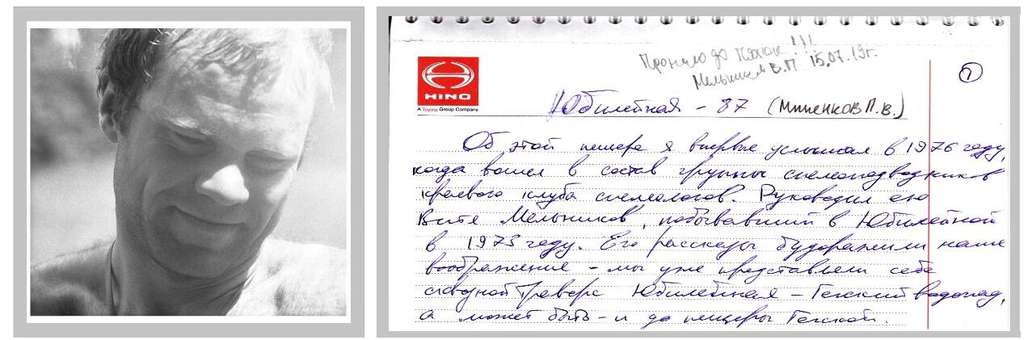 Проняло до кишок !!!
Мельников В.П 15.07.19г.
7
HINO
A Toyota Group Company
Юбилейная - 87 (Миненков П.В.)
Об этой пещере я впервые услышал в 1976 году,
когда вошел в состав группы спелеоподводников
краевого клуба спелеологов. Руководил ею
Витя Мельников, побывавший в Юбилейной
в 1975 году. Его рассказы будоражили наше
воображение - мы уже представляли себе
сквозной Траверс Юбилейная - Гегский водопад,
а может быть - и до пещеры Гегской.